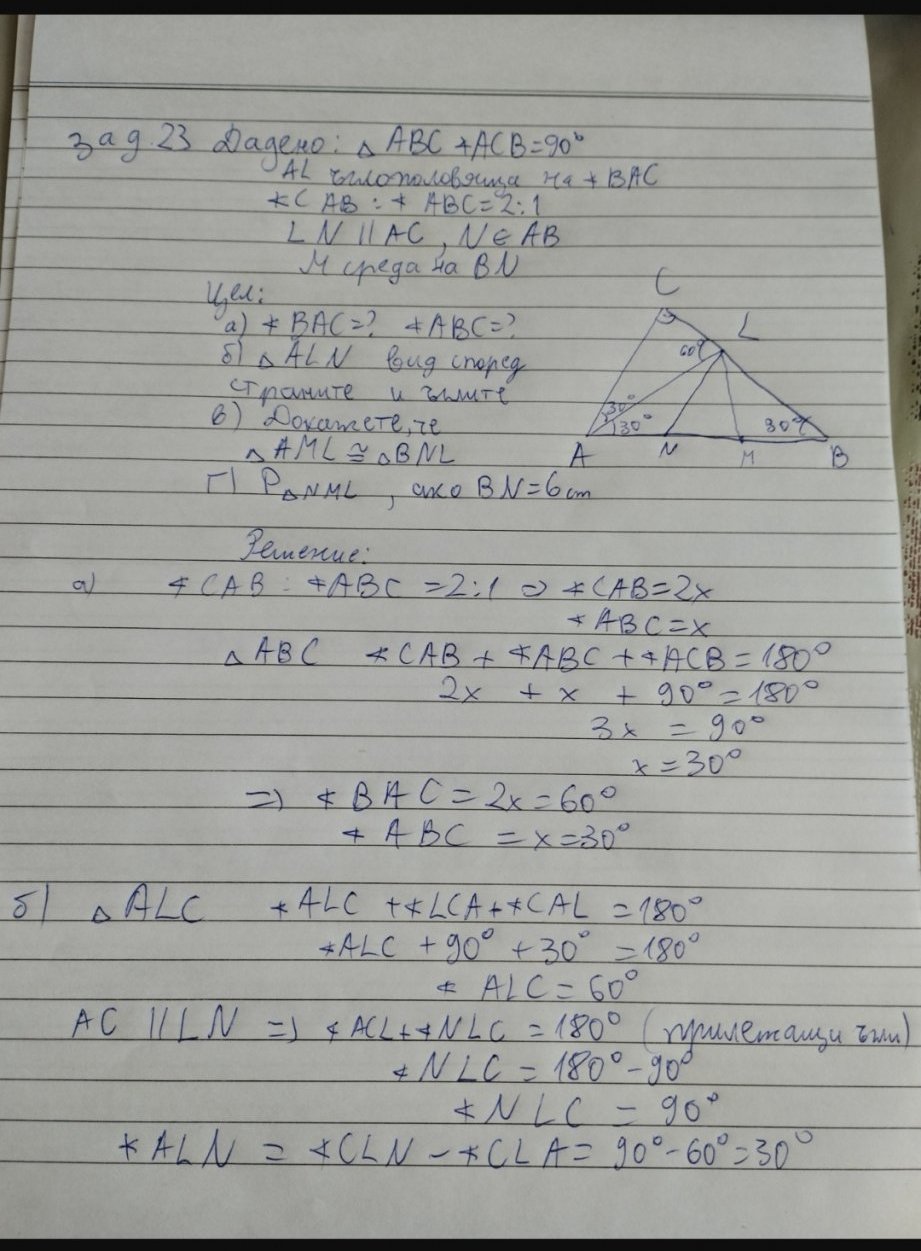 зад.23 Дадено: △ABC ∢ACB=90°
AL ъглополовяща на ∢BAC
∢CAB : ∢ABC=2:1
LN || AC, N∈AB
M среда на BN
Цел:
a) ∢BAC=? ∢ABC=?
б) △ALN вид според
страните и ъглите
в) Докажете, че
△AML ≅ △BNL
г) P△NML, ако BN=6cm
C
L
60°
30°
30°
30°
A
N
M
B
Решение:
a) ∢CAB : ∢ABC=2:1 => ∢CAB=2x
∢ABC=x
△ABC ∢CAB + ∢ABC + ∢ACB=180°
2x + x + 90°=180°
3x = 90°
x=30°
=> ∢BAC=2x=60°
∢ABC =x=30°
б) △ALC ∢ALC +∢LCA+∢CAL =180°
∢ALC +90° +30° =180°
∢ALC=60°
AC || LN => ∢ACL+∢NLC =180° (прилежащи ъгли)
∢NLC =180°-90°
∢NLC = 90°
∢ALN = ∢CLN - ∢CLA= 90°-60°=30°